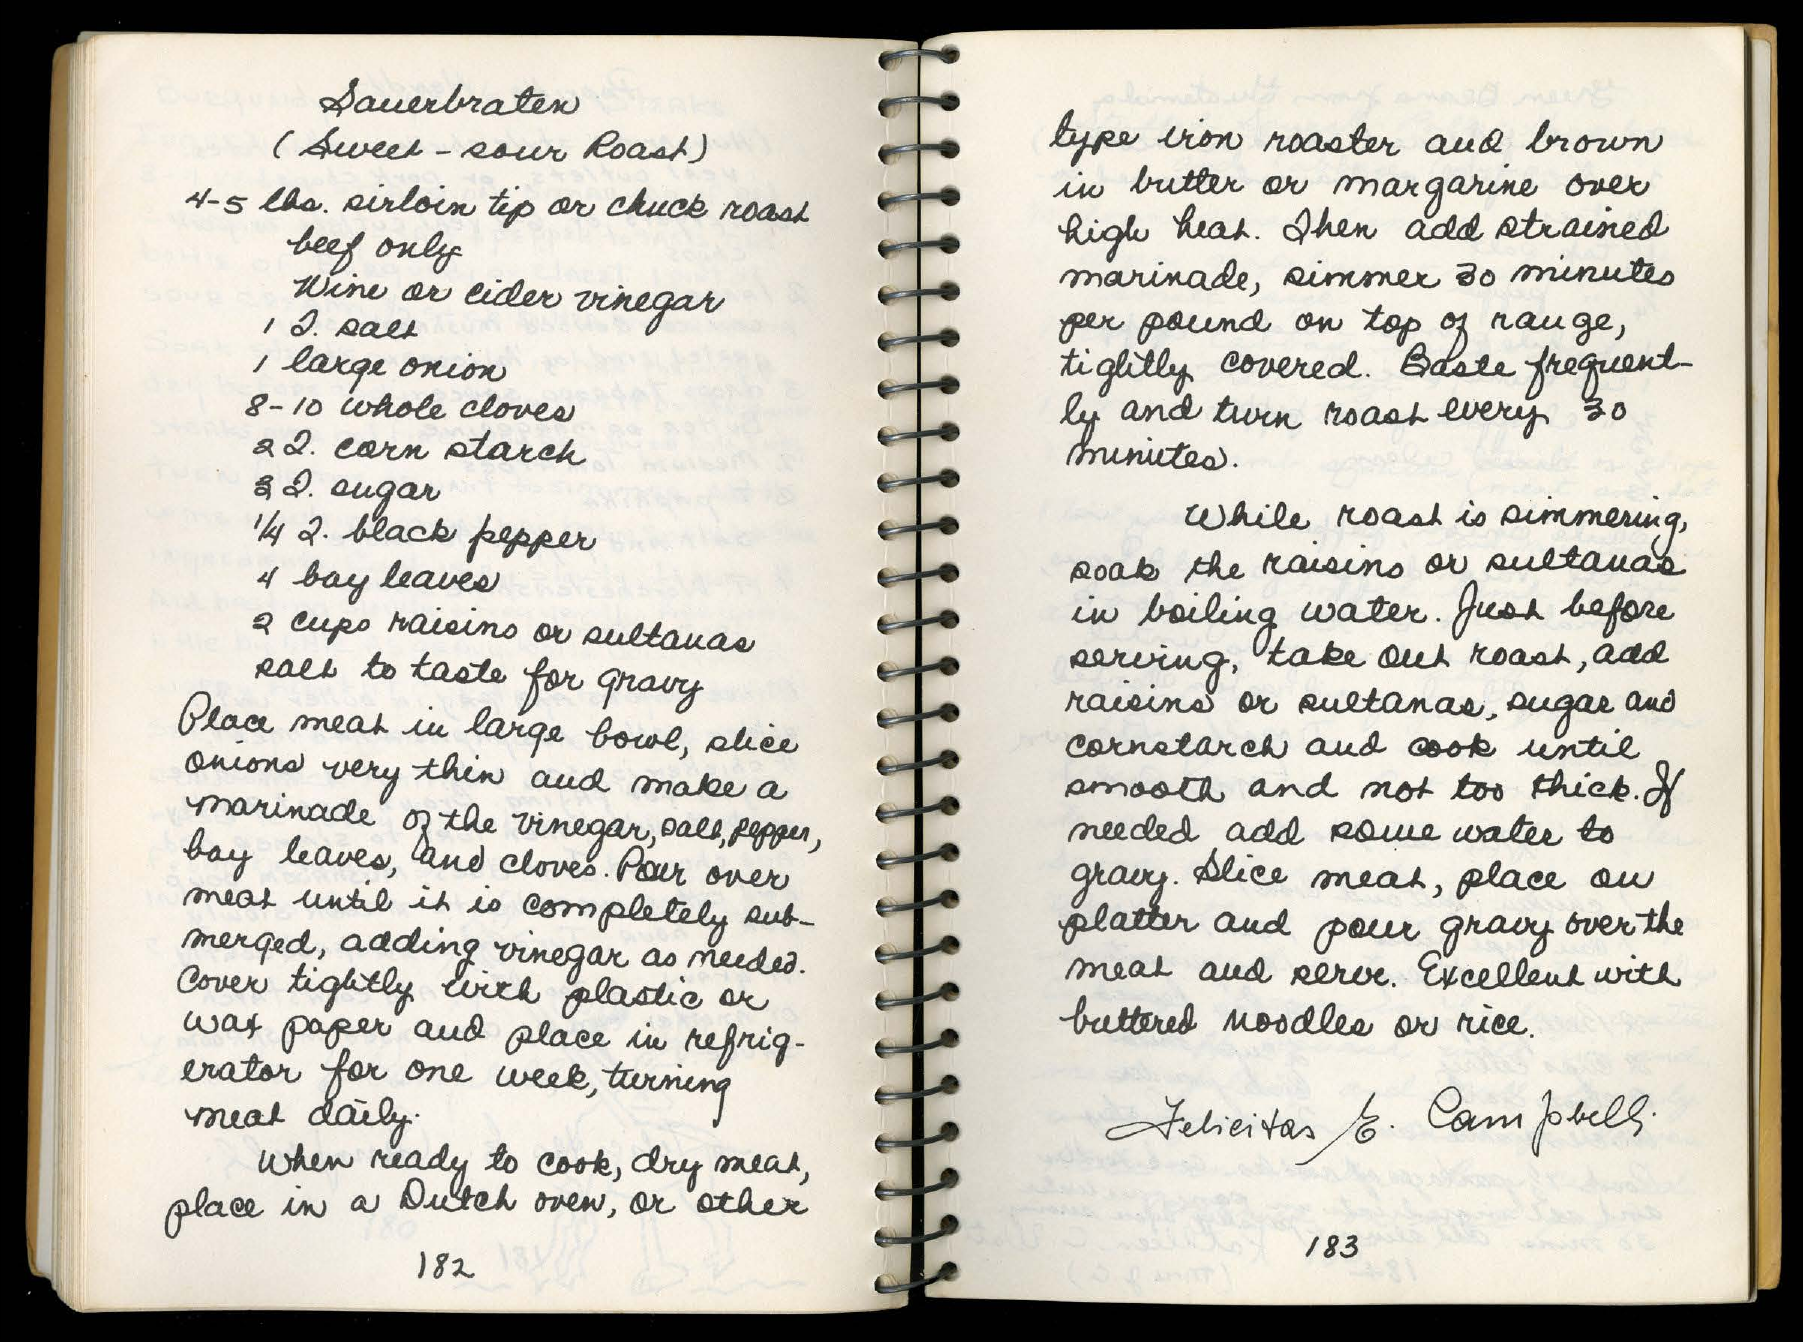 Sauerbraten
(Sweet-sour Roast)
4-5 lbs. sirloin tip or chuck roast
beef only
Wine or cider vinegar
1 T. salt
1 large onion
8-10 whole cloves
2 T. corn starch
3 T. sugar
1/4 T. black pepper
4 bay leaves
2 cups raisins or sultanas
salt to taste for gravy
Place meat in large bowl, slice
onions very thin and make a
marinade of the vinegar, salt, pepper,
bay leaves, and cloves. Pour over
meat until it is completely sub-
merged, adding vinegar as needed.
Cover tightly with plastic or
wax paper and place in refrig-
erator for one week, turning
meat daily.
When ready to cook, dry meat,
place in a Dutch oven, or other
182
type iron roaster and brown
in butter or margarine over
high heat. Then add strained
marinade, simmer 30 minutes
per pound on top of range,
tightly covered. Baste frequent-
ly and turn roast every 30
minutes.
While roast is simmering,
soak the raisins or sultanas
in boiling water. Just before
serving, take out roast, add
raisins or sultanas, sugar and
cornstarch and cook until
smooth and not too thick. If
needed add some water to
gravy. Slice meat, place on
platter and pour gravy over the
meat and serve. Excellent with
buttered noodles or rice.
Felicitas E. Campbell
183